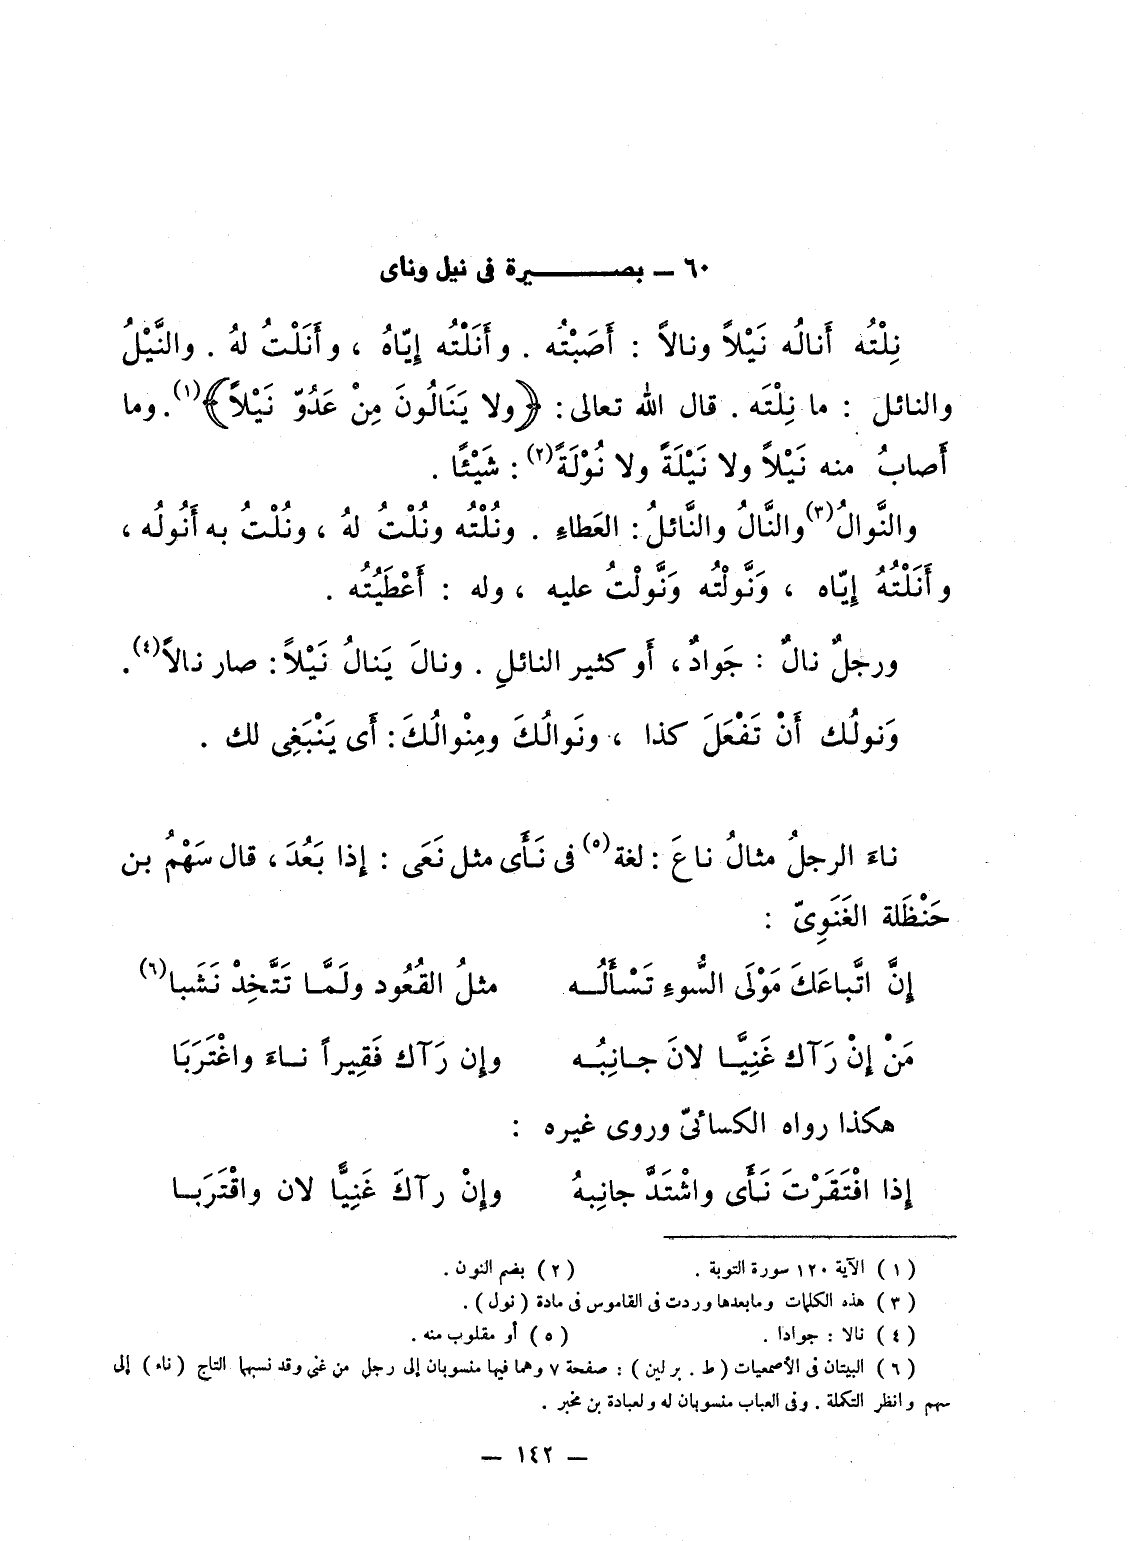 ٦٠ – بصيرة فى نيل وناى
نِلْتُه أَنالُه نَيْلاً ونالاً : أَصَبْتُه . وأَنَلْتُه إِيّاهُ ، وأَنَلْتُ لهُ . والنَّيْلُ
والنائل : ما نِلْتَه . قال الله تعالى : ﴿ولا يَنَالُونَ مِنْ عَدُوّ نَيْلاً﴾(١). وما
أَصابُ منه نَيْلاً ولا نَيْلَةً ولا نُوْلَةً(٢) : شَيْئًا .
والنَّوالُ(٣) والنَّالُ والنَّائلُ : العَطاء . ونُلْتُه ونُلْتُ لهُ ، ونُلْتُ به أَنُولُه ،
وأَنَلْتُهُ إِيّاه ، وَنَّولْتُه وَنَّولْتُ عليه ، وله : أَعْطَيُتُه .
ورجلٌ نالٌ : جَوادٌ ، أَو كثير النائلِ . ونالَ يَنالُ نَيْلاً : صار نالاً(٤).
وَنولُك أَنْ تَفْعَلَ كذا ، ونَوالُكَ ومِنْوالُكَ : أَى يَنْبَغِى لك .
ناءَ الرجلُ مثالُ ناعَ : لغة(٥) فى نَـأَى مثل نَعَى : إِذا بَعُدَ ، قال سَهْمُ بن
حَنْظَلة الغَنَوِىّ :
إِنَّ اتَّباعَكَ مَوْلَى السُّوءِ تَسْأَلُـه مثلُ القُعُود ولَمَّـا تَتَّخِذْ نَشَبا(٦)
مَنْ إِنْ رَآك غَنِيًّـا لانَ جـانِبُـه وإِن رَآك فَقِيراً نـاءَ واغْتَرَبَا
هكذا رواه الكسائىّ وروى غيره :
إِذا افْتَقَرْتَ نَـأَى واشْتَدَّ جانِبهُ وإِنْ رآكَ غَنِيًّا لان واقْتَرَبـا
(١) الآية ١٢٠ سورة التوبة . (٢) بضم النون .
(٣) هذه الكلمات ومابعدها وردت فى القاموس فى مادة (نول) .
(٤) نالا : جوادا . (٥) أو مقلوب منه .
(٦) البيتان فى الأصمعيات (ط . برلين) : صفحة ٧ وهما فيها منسوبان إلى رجل من غنى وقد نسبهما التاج (ناء) إلى
سهم وانظر التكملة . وفى العباب منسوبان له ولعبادة بن مخبر .
– ١٤٢ –